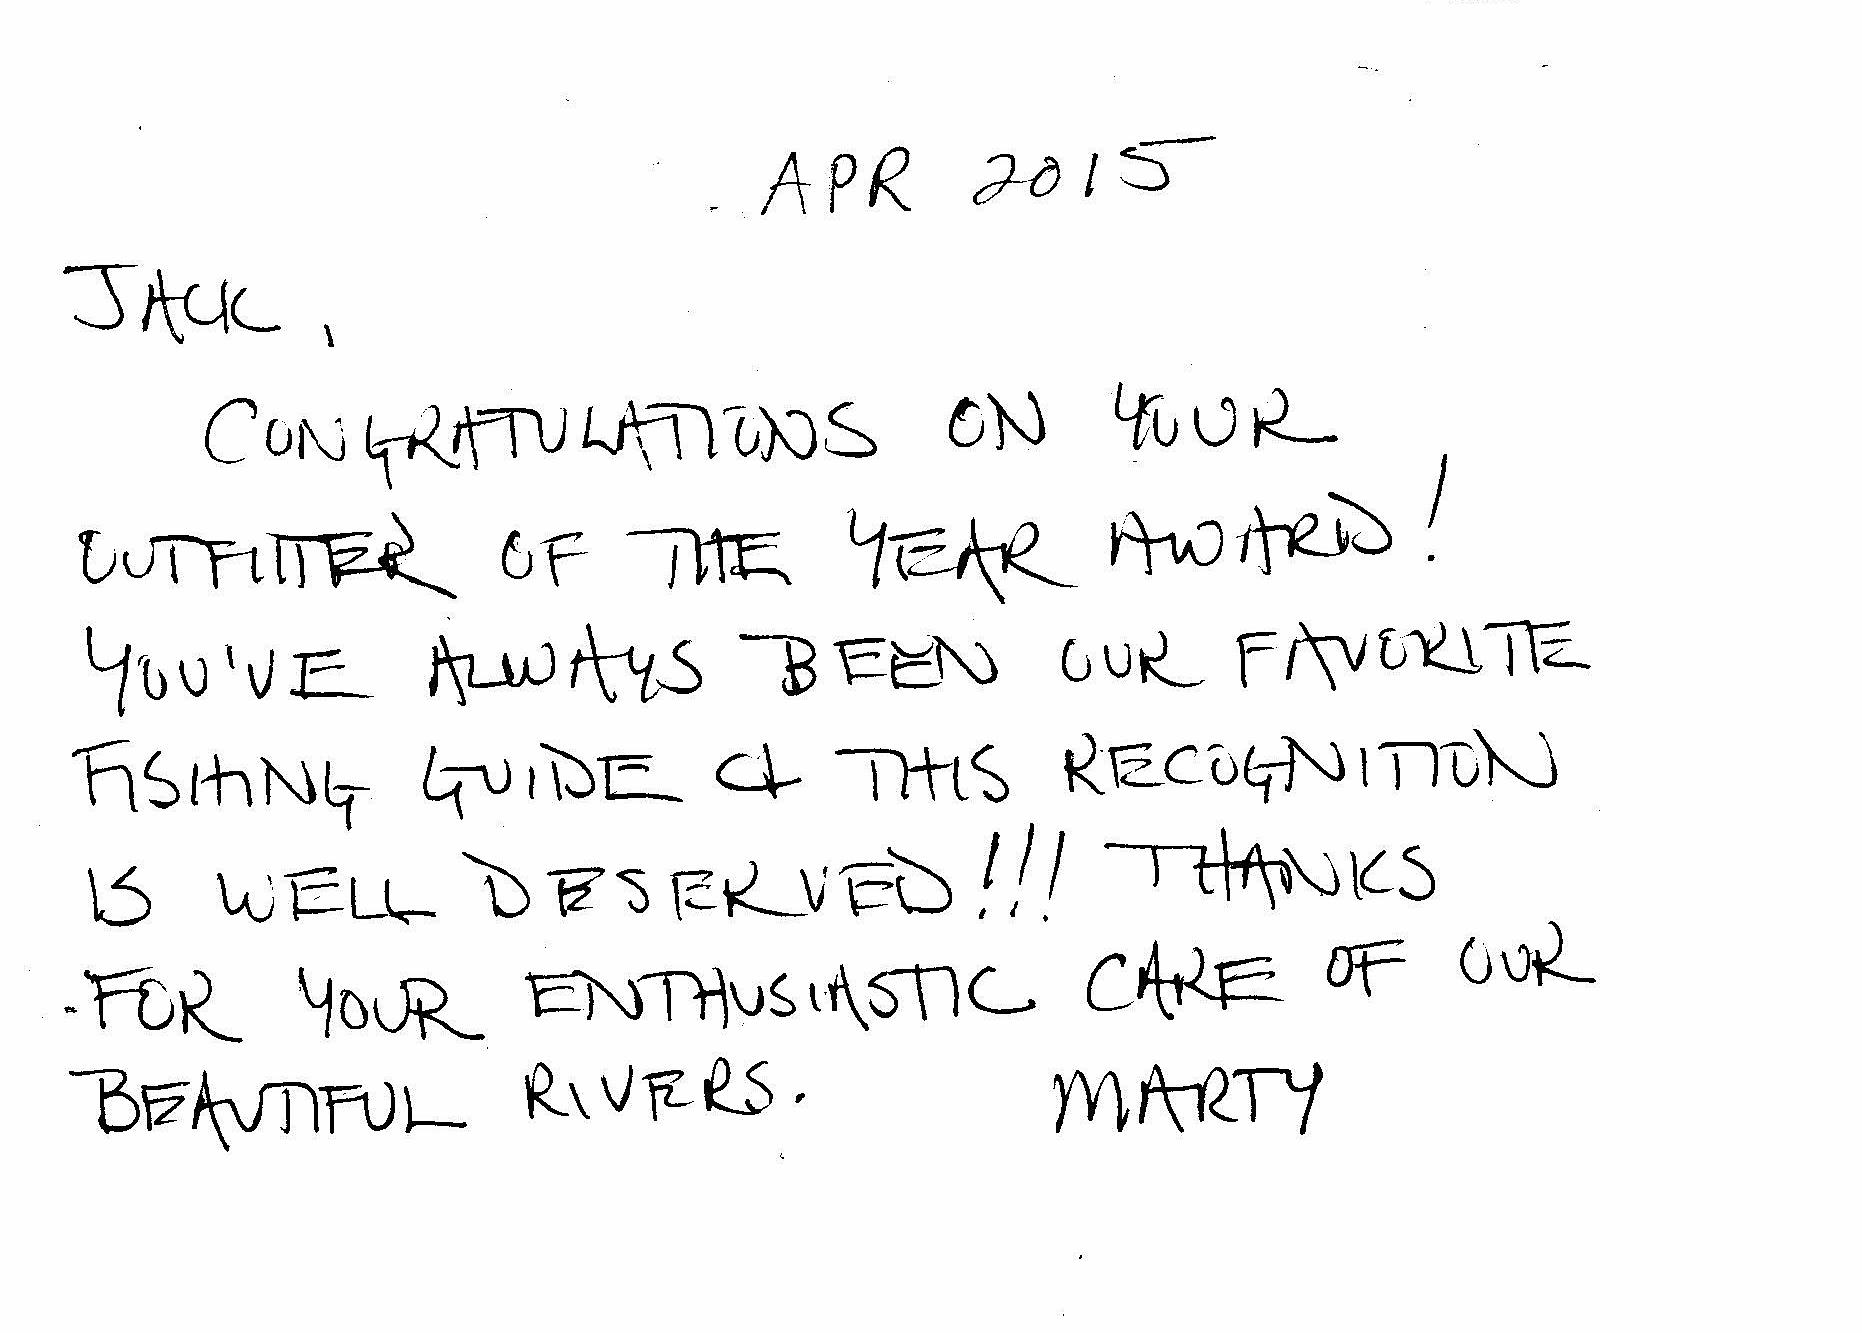 APR 2015
JACK,
CONGRATULATIONS ON YOUR
OUTFITTER OF THE YEAR AWARD!
YOU'VE ALWAYS BEEN OUR FAVORITE
FISHING GUIDE & THIS RECOGNITION
IS WELL DESERVED!!! THANKS
FOR YOUR ENTHUSIASTIC CARE OF OUR
BEAUTIFUL RIVERS. MARTY